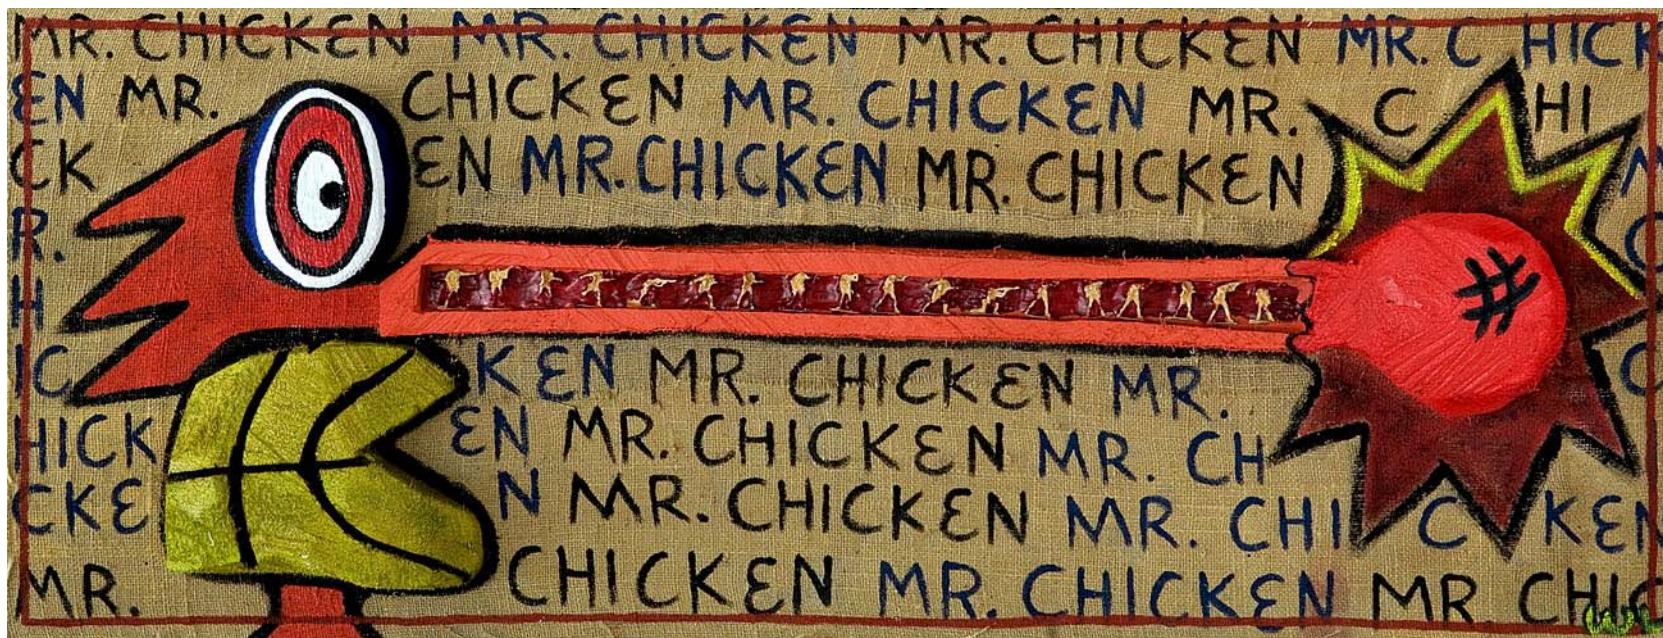 MR. CHICKEN MR. CHICKEN MR. CHICKEN MR. C HICK
EN MR. CHICKEN MR. CHICKEN MR. C HI
CK EN MR. CHICKEN MR. CHICKEN M
R. C
H
IC KEN MR. CHICKEN MR. C
HICK EN MR. CHICKEN MR. CH
CKE N MR. CHICKEN MR. CHI C KEN
MR. CHICKEN MR. CHICKEN MR CHIC
#